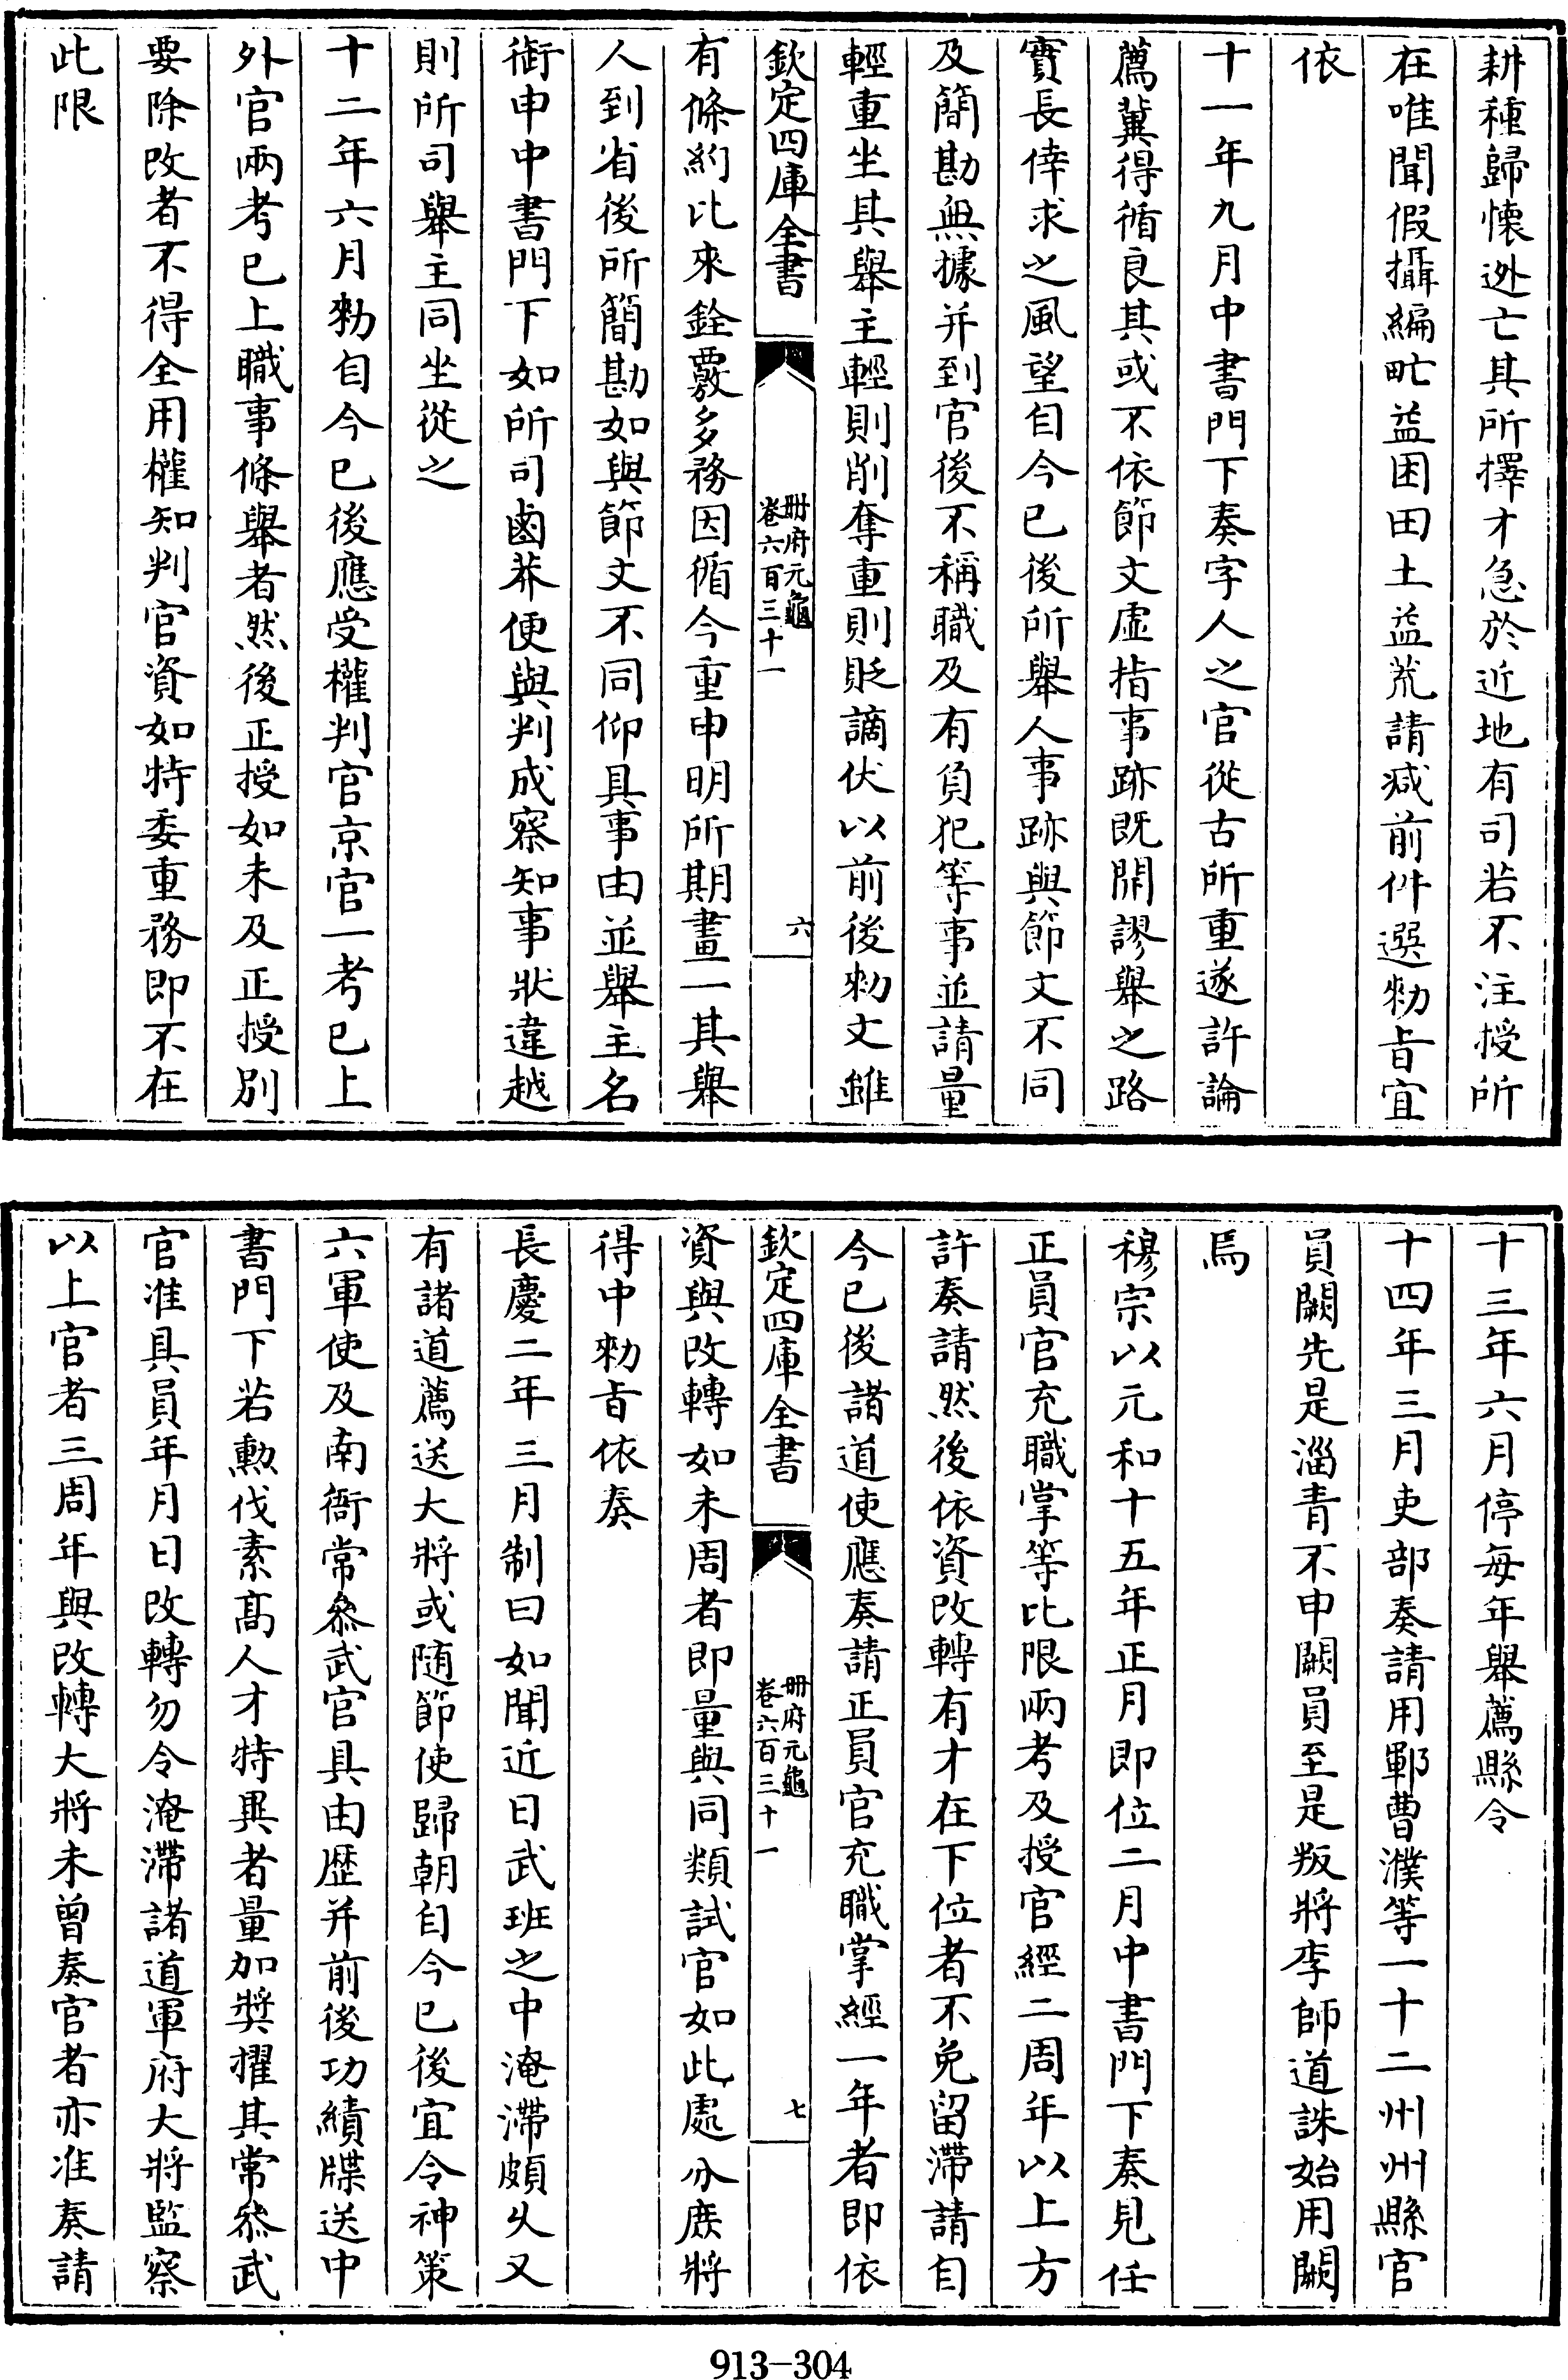 耕種歸懷逃亡其所擇才急於近地有司若不注授所
在唯聞假攝編甿益困田土益荒請減前件選勅旨宜
依
十一年九月中書門下奏字人之官從古所重遂許論
薦冀得循良其或不依節文虛指事跡既開謬舉之路
實長倖求之風望自今已後所舉人事跡與節文不同
及簡勘無據并到官後不稱職及有負犯等事並請量
輕重坐其舉主輕則削奪重則貶謫伏以前後勅文雖
欽定四庫全書
冊府元龜
卷六百三十一
六
有條約比來銓覈多務因循今重申明所期畫一其舉
人到省後所簡勘如與節文不同仰具事由並舉主名
銜申中書門下如所司鹵莽便與判成察知事狀違越
則所司舉主同坐從之
十二年六月勅自今已後應受權判官京官一考已上
外官兩考已上職事條舉者然後正授如未及正授別
要除改者不得全用權知判官資如特委重務即不在
此限
十三年六月停每年舉薦縣令
十四年三月吏部奏請用鄆曹濮等一十二州州縣官
員闕先是淄青不申闕員至是叛將李師道誅始用闕
焉
穆宗以元和十五年正月即位二月中書門下奏見任
正員官充職掌等比限兩考及授官經二周年以上方
許奏請然後依資改轉有才在下位者不免留滯請自
今已後諸道使應奏請正員官充職掌經一年者即依
欽定四庫全書
冊府元龜
卷六百三十一
七
資與改轉如未周者即量與同類試官如此處分庶將
得中勅旨依奏
長慶二年三月制曰如聞近日武班之中淹滯頗久又
有諸道薦送大將或隨節使歸朝自今已後宜令神策
六軍使及南衙常叅武官具由歷并前後功績牒送中
書門下若勳伐素髙人才特異者量加奬擢其常叅武
官准具員年月日改轉勿令淹滯諸道軍府大將監察
以上官者三周年與改轉大將未曾奏官者亦准奏請
913-304